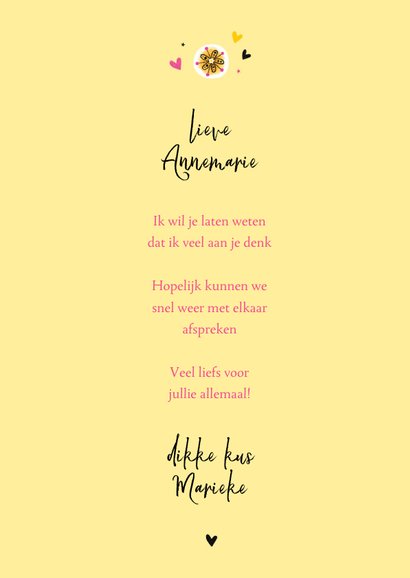 lieve
Annemarie
Ik wil je laten weten
dat ik veel aan je denk
Hopelijk kunnen we
snel weer met elkaar
afspreken
Veel liefs voor
jullie allemaal!
dikke kus
Marieke